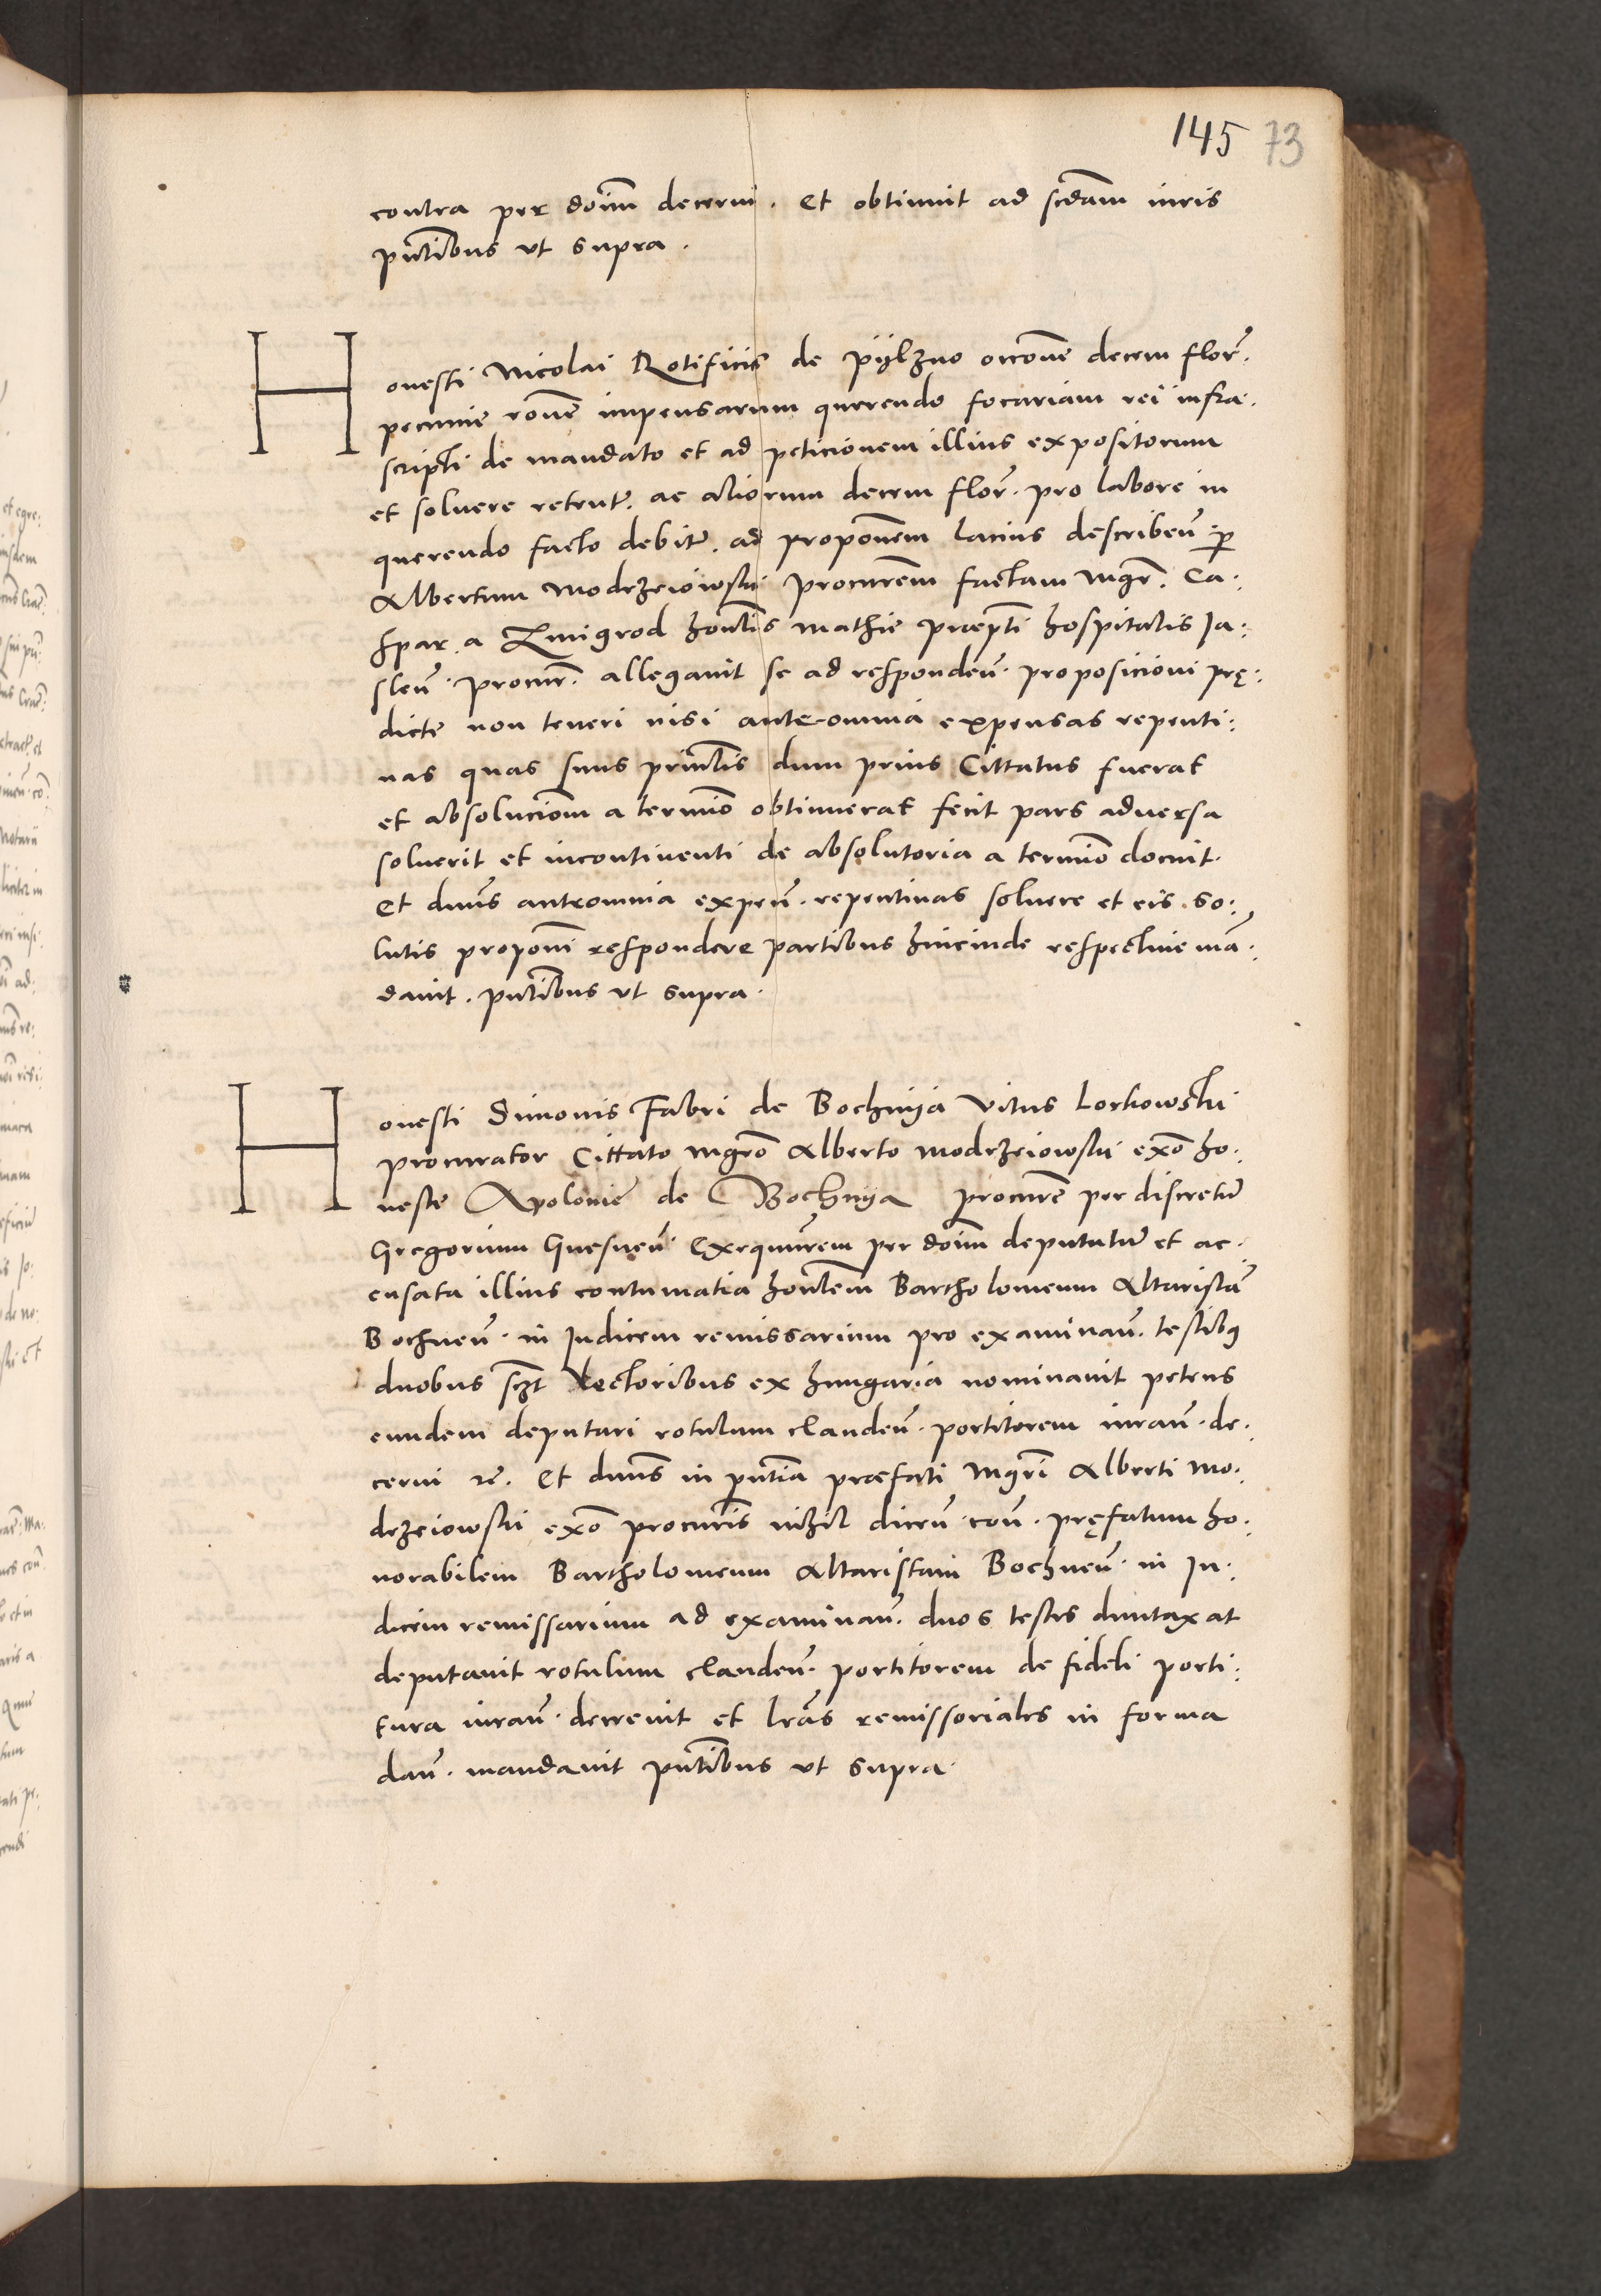 145 73
contra per doim decerni. Et obtinuit ad scdam iuris
pntibus vt supra.
Honesti Nicolai Rotificis de Pijlzno occone decem flor.
pecunie rone impensarum querendo focariam rei infra.
scripti de mandato et ad peticionem illius expositorum
et soluere retentr. ac aliorum decem flor. pro labore in
querendo facto debitr. ad proponem lacius describen p
Albertum Modrzeiowski procurem factam Mgr. Ca.
spar a Zmigrod honlis Mathie prepti hospitalis Ja:
slen. procur. allegauit se ad responden. proposicioni prę:
dicte non teneri nisi ante omnia expensas repenti:
nas quas suus prinlis dum prius Cittatus fuerat
et absolucioni a termio obtinuerat fecit pars aduersa
soluerit et incontinenti de absolutoria a termio docuit.
Et dnus anteomnia expen. repentinas soluere et eis so:
lutis proponi respondere partibus hincinde respectiue ma:
dauit. pntibus vt supra.
Honesti Simonis Fabri de Bochnija Vitus Lorkowski
procurator Cittato mgro Alberto Modrzeiowski exo ho.
neste Apolonie de Bochnija procure per discretu
Gregorium Gnesnen. Exequurem per doim deputatu et ac.
cusata illius contumatia honlem Bartholomeum Altarista
Bochnen. in Judicem remissarium pro examinan. testibus
duobus sczt Rectoribus ex Hungaria nominauit petens
eundem deputari rotulum clauden. portitorem iuran. de.
cerni rc. Et dnus in pntia prefati Mgri Alberti Mo.
drzeiowski exo procuris nihil dicen. con. pręfatum ho.
norabilem Bartholomeum Altaristam Bochnen. in Ju.
dicem remissarium ad examinan. duos testes duntaxat
deputauit rotulum clauden. portitorem de fideli porti:
tura iuran. decreuit et lras remissoriales in forma
dan. mandauit pntibus vt supra.